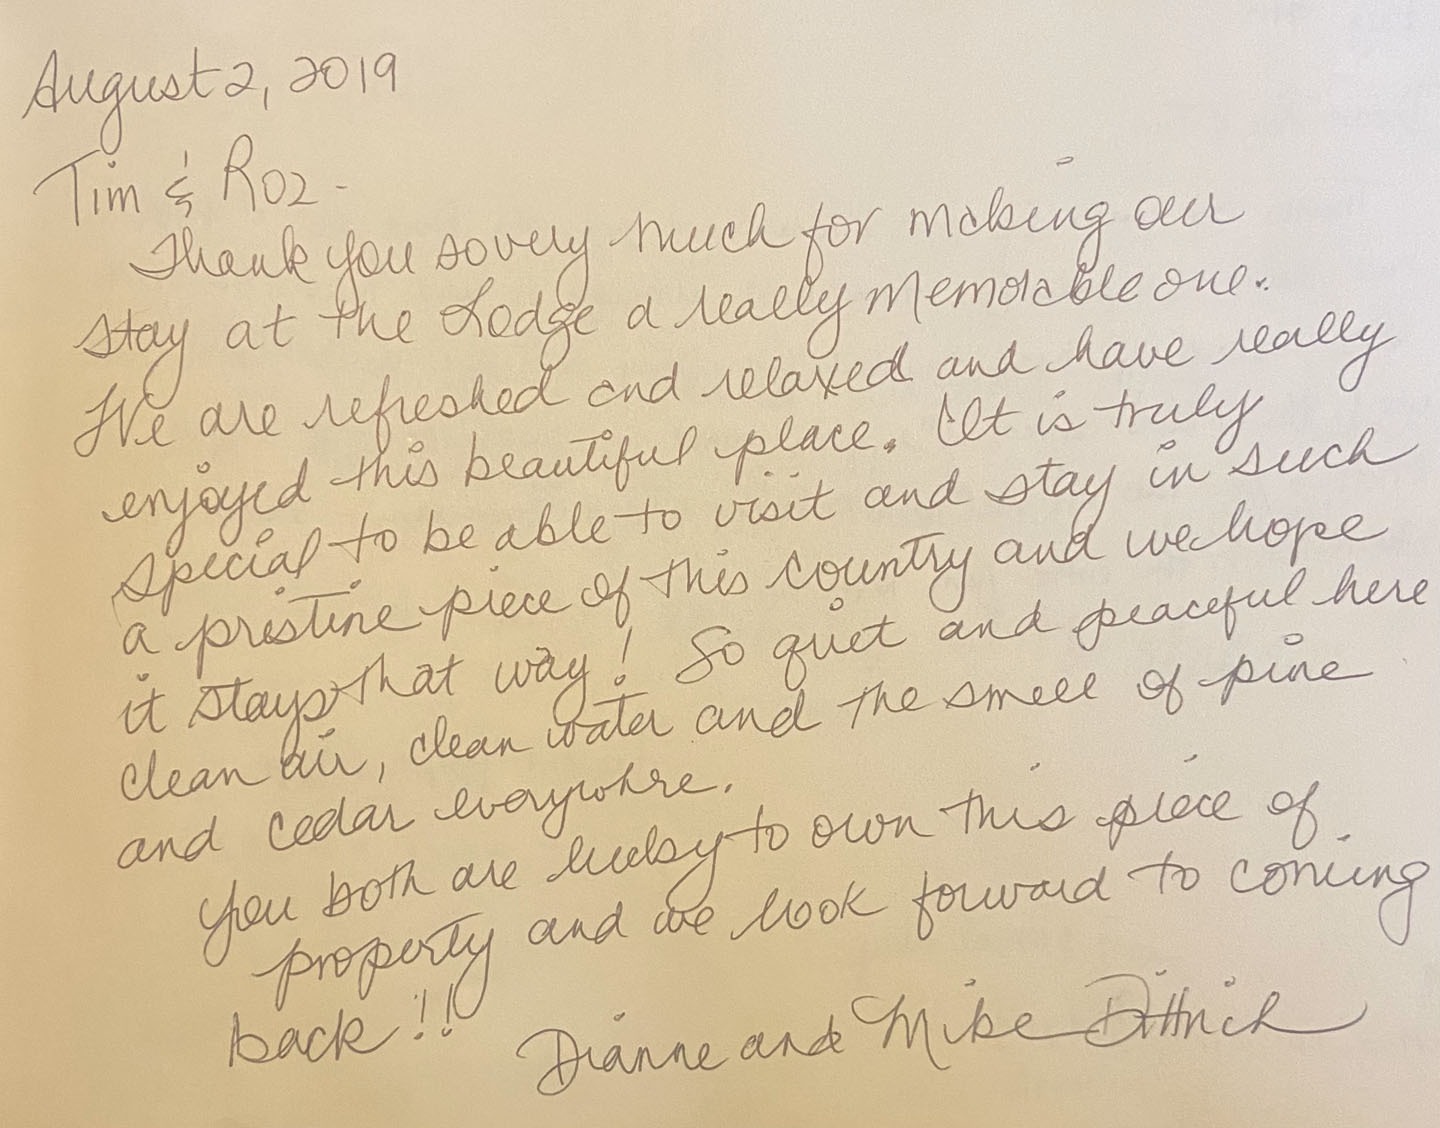 August 2, 2019
Tim & Roz -
Thank you so very much for making our
stay at the Lodge a really memorable one.
We are refreshed and relaxed and have really
enjoyed this beautiful place. It is truly
special to be able to visit and stay in such
a pristine piece of this country and we hope
it stays that way! So quiet and peaceful here
clean air, clean water and the smell of pine
and cedar everywhre.
You both are lucky to own this piece of
property and we look forward to coming
back!!
Dianne and Mike Dittrich